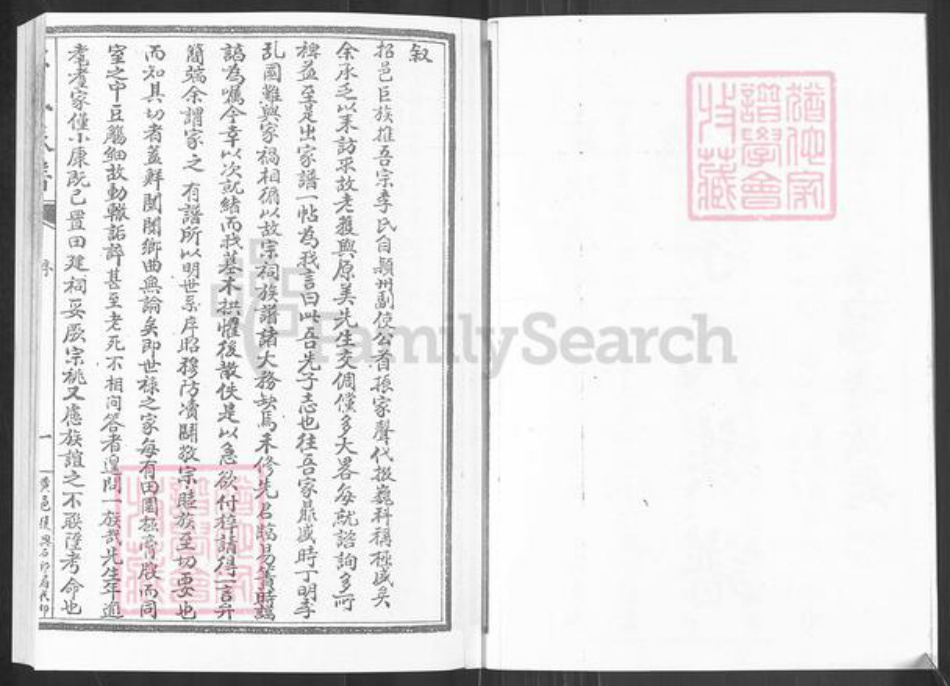 叙
招邑巨族推吾宗李氏自潁州副使公首振家聲代掇巍科稱極盛矣
余承乏以来訪求故老獲與原美先生交倜儻多大畧每就諮詢多所
裨益至是出家譜一帖為我言曰此吾先子志也往吾家鼎盛時丁明季
乱國難與家禍相循以故宗祠族譜諸大務缺焉未修先君臨易簀時諄
諄為嘱今幸以次就緒而我墓木拱懼後散佚是以急欲付梓請得一言弁
簡端余謂家之有譜所以明世系序昭穆防凟闘敬宗睦族至切要也
而知其切者蓋鮮閭閻鄉曲無論矣即世禄之家每有田園極膏腴而同
室之中豆觴細故動輙詬誶甚至老死不相问答者遑問一族哉先生年逾
耄耋家僅小康既已置田建祠妥厥宗祧又慮族誼之不聯墜考命也
序
一
黄邑復興石印局代印
猶他家
譜學會
收藏
猶他家
譜學會
收藏
FamilySearch